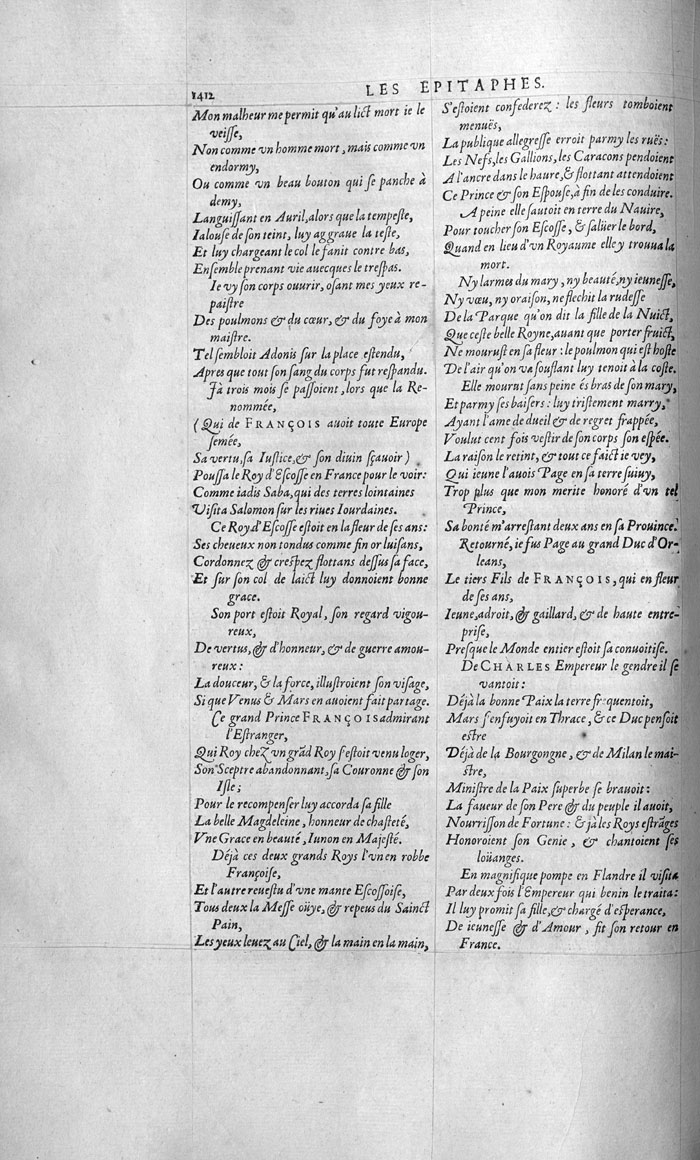 1412
LES EPITAPHES.
Mon malheur me permit qu'au lict mort ie le
veisse,
Non comme vn homme mort, mais comme vn
endormy,
Ou comme vn beau bouton qui se panche à
demy,
Languissant en Auril, alors que la tempeste,
Ialouse de son teint, luy aggraue la teste,
Et luy chargeant le col le fanit contre bas,
Ensemble prenant vie auecques le trespas.
Ie vy son corps ouurir, osant mes yeux re-
paistre
Des poulmons & du cœur, & du foye à mon
maistre.
Tel sembloit Adonis sur la place estendu,
Apres que tout son sang du corps fut respandu.
Jà trois mois se passoient, lors que la Re-
nommée,
(Qui de FRANÇOIS auoit toute Europe
semée,
Sa vertu, sa Iustice, & son diuin sçauoir)
Poussa le Roy d'Escosse en France pour le voir:
Comme iadis Saba, qui des terres lointaines
Visita Salomon sur les riues Iourdaines.
Ce Roy d'Escosse estoit en la fleur de ses ans:
Ses cheueux non tondus comme fin or luisans,
Cordonnez & crespez flottans dessus sa face,
Et sur son col de laict luy donnoient bonne
grace.
Son port estoit Royal, son regard vigou-
reux,
De vertus, & d'honneur, & de guerre amou-
reux:
La douceur, & la force, illustroient son visage,
Si que Venus & Mars en auoient fait partage.
Ce grand Prince FRANÇOIS admirant
l'Estranger,
Qui Roy chez vn grãd Roy s'estoit venu loger,
Son Sceptre abandonnant, sa Couronne & son
Isle;
Pour le recompenser luy accorda sa fille
La belle Magdeleine, honneur de chasteté,
Vne Grace en beauté, Iunon en Majesté.
Déjà ces deux grands Roys l'vn en robbe
Françoise,
Et l'autre reuestu d'vne mante Escossoise,
Tous deux la Messe oüye, & repeus du Sainct
Pain,
Les yeux leuez au Ciel, & la main en la main,
S'estoient confederez: les fleurs tomboient
menuës,
La publique allegresse erroit parmy les ruës:
Les Nefs, les Gallions, les Caracons pendoient
A l'ancre dans le haure, & flottant attendoient
Ce Prince & son Espouse, à fin de les conduire.
A peine elle sautoit en terre du Nauire,
Pour toucher son Escosse, & salüer le bord,
Quand en lieu d'vn Royaume elle y trouua la
mort.
Ny larmes du mary, ny beauté, ny ieunesse,
Ny vœu, ny oraison, ne flechit la rudesse
De la Parque qu'on dit la fille de la Nuict,
Que ceste belle Royne, auant que porter fruict,
Ne mourust en sa fleur: le poulmon qui est hoste
De l'air qu'on va souflant luy tenoit à la coste.
Elle mourut sans peine és bras de son mary,
Et parmy ses baisers: luy tristement marry,
Ayant l'ame de dueil & de regret frappée,
Voulut cent fois vestir de son corps son espée.
La raison le retint, & tout ce faict ie vey,
Qui ieune l'auois Page en sa terre suiuy,
Trop plus que mon merite honoré d'vn tel
Prince,
Sa bonté m'arrestant deux ans en sa Prouince.
Retourné, ie fus Page au grand Duc d'Or-
leans,
Le tiers Fils de FRANÇOIS, qui en fleur
de ses ans,
Ieune, adroit, & gaillard, & de haute entre-
prise,
Presque le Monde entier estoit sa conuoitise.
De CHARLES Empereur le gendre il se
vantoit:
Déjà la bonne Paix la terre frequentoit,
Mars s'enfuyoit en Thrace, & ce Duc pensoit
estre
Déjà de la Bourgongne, & de Milan le mai-
stre,
Ministre de la Paix superbe se brauoit:
La faueur de son Pere & du peuple il auoit,
Nourrisson de Fortune: & jà les Roys estrãges
Honoroient son Genie, & chantoient ses
loüanges.
En magnifique pompe en Flandre il visita
Par deux fois l'Empereur qui benin le traita:
Il luy promit sa fille, & chargé d'esperance,
De ieunesse & d'Amour, fit son retour en
France.